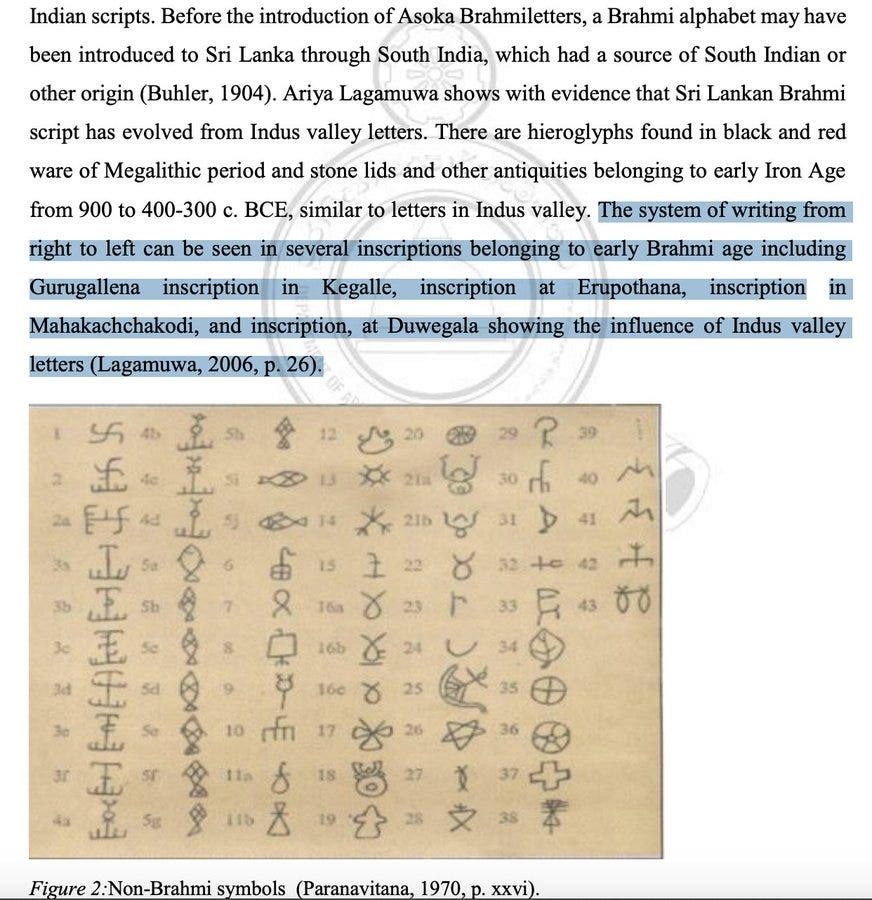 Indian scripts. Before the introduction of Asoka Brahmiletters, a Brahmi alphabet may have
been introduced to Sri Lanka through South India, which had a source of South Indian or
other origin (Buhler, 1904). Ariya Lagamuwa shows with evidence that Sri Lankan Brahmi
script has evolved from Indus valley letters. There are hieroglyphs found in black and red
ware of Megalithic period and stone lids and other antiquities belonging to early Iron Age
from 900 to 400-300 c. BCE, similar to letters in Indus valley. The system of writing from
right to left can be seen in several inscriptions belonging to early Brahmi age including
Gurugallena inscription in Kegalle, inscription at Erupothana, inscription in
Mahakachchakodi, and inscription, at Duwegala showing the influence of Indus valley
letters (Lagamuwa, 2006, p. 26).
1 4b 5h 12 20 29 39
2 4c 5i 13 21a 30 40
2a 4d 5j 14 21b 31 41
3a 5a 6 15 22 32 42
3b 5b 7 16a 23 33 43
3c 5c 8 16b 24 34
3d 5d 9 16c 25 35
3e 5e 10 17 26 36
3f 5f 11a 18 27 37
4a 5g 11b 19 28 38
Figure 2:Non-Brahmi symbols (Paranavitana, 1970, p. xxvi).